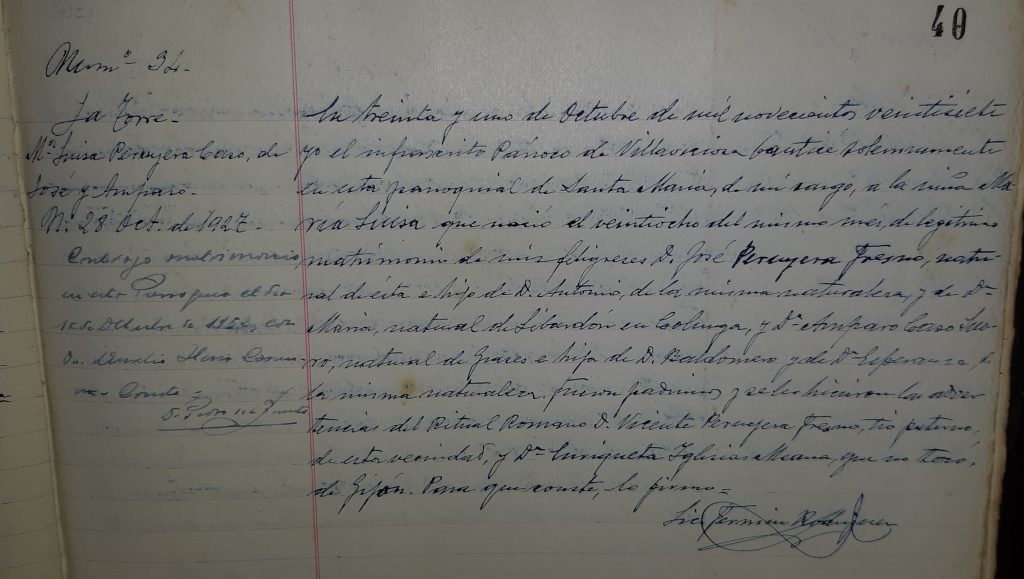 40
Numº 34.
La Torre.
Mª Luisa Peruyera Caso, de
José y Amparo.
N. 28 Oct. de 1927.
Contrajo matrimonio
en esta Parroquia el día
de Octubre de 195 con
Dn. Aurelio
Conde
En treinta y uno de Octubre de mil novecientos veintisiete
yo el infrascrito Párroco de Villaviciosa bauticé solemnemente
en esta parroquial de Santa María, de mi cargo, a la niña Ma-
ría Luisa que nació el veintiocho del mismo mes, de legítimo
matrimonio de mis feligreses D. José Peruyera Fresno, natu-
ral de ésta e hijo de D. Antonio, de la misma naturaleza, y de Dª
María, natural de Libardón en Colunga, y Dª Amparo Caso Sue-
ro, natural de Grases e hija de D. Baldomero y de Dª Esperanza de
la misma naturaleza. Fueron padrinos y se les hicieron las adver-
tencias del Ritual Romano D. Vicente Peruyera Fresno, tío paterno,
de esta vecindad, y Dª Enriqueta Iglesias Meana, que no tocó,
de Gijón. Para que conste, lo firmo=
Lic. Fermín